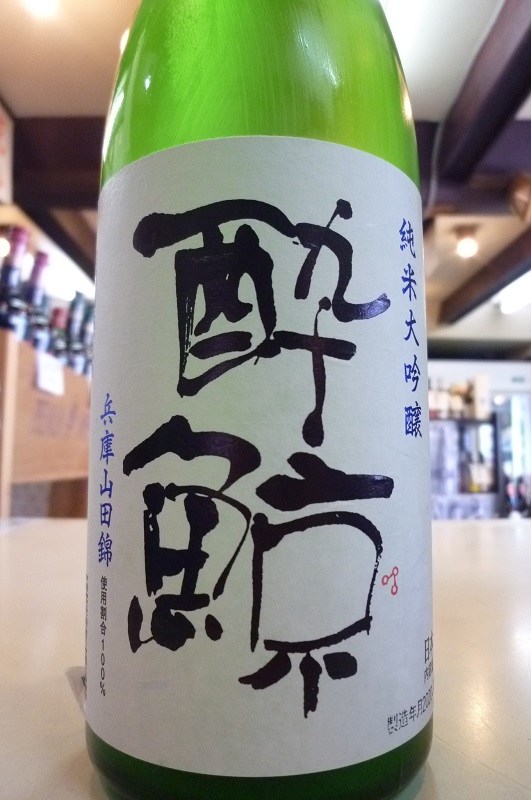 純米大吟醸
酔鯨
兵庫山田錦
使用割合100%
日本
製造年月20